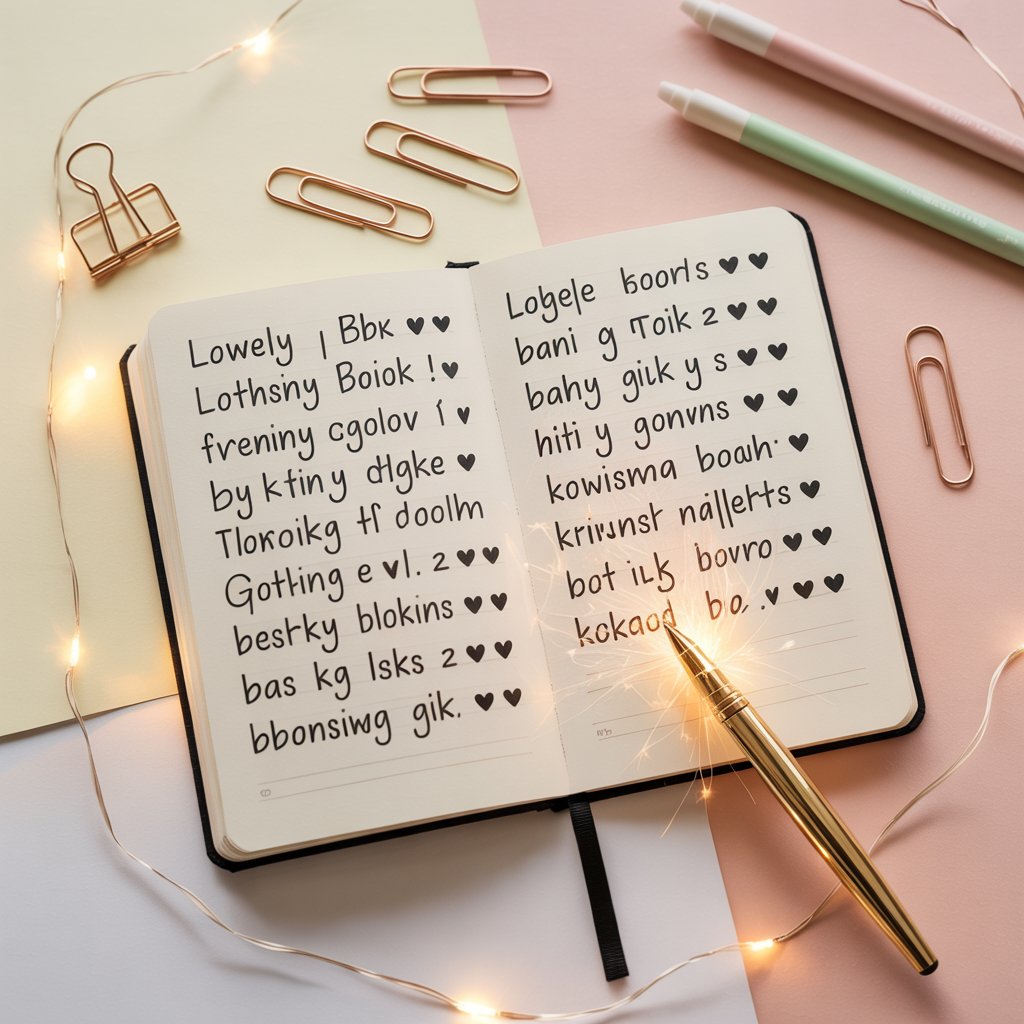 Lowely | Bbk ♥♥
Lothsiny Boiok ! ♥
freniny cgolov í ♥
by kfiny dlgke ♥
Tloroikg tf doolm
Gotling e vl. 2 ♥♥
bestky blokins ♥♥
bas kg lsks 2 ♥♥
bbonsiwg gik. ♥♥
Logele boorls ♥♥
bani g Toik 2 ♥♥
bahy gilk y s ♥♥
hiti y gonvns ♥♥
kowisma boah· ♥
♥
bot bovro ♥♥
kokaod bo. .♥ ♥♥